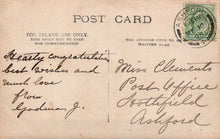 POST CARD
FOR INLAND USE ONLY
THIS SPACE MAY BE USED
FOR COMMUNICATION
THE ADDRESS ONLY TO BE
WRITTEN HERE
Hearty congratulations
best wishes and
much love
from
Miss Clements
Post Office
Hothfield
Ashford